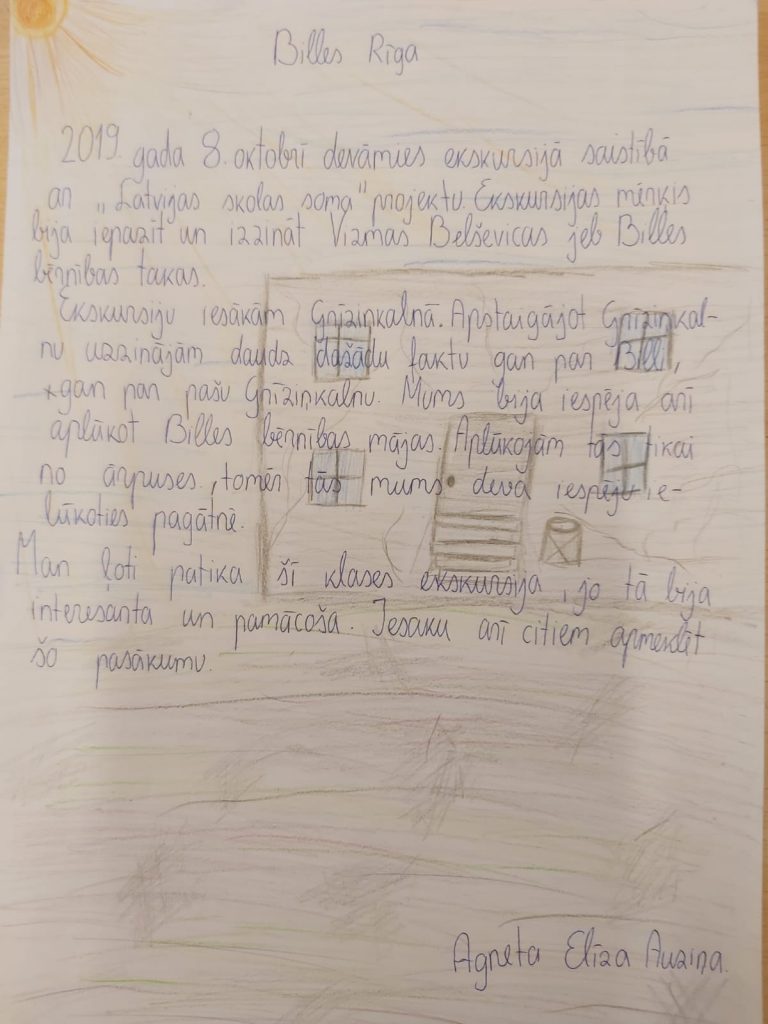 Billes Rīga
2019. gada 8. oktobrī devāmies ekskursijā saistībā
ar „Latvijas skolas soma" projektu. Ekskursijas mērķis
bija iepazīt un izzināt Vizmas Belševicas jeb Billes
bērnības takas.
Ekskursiju iesākām Grīziņkalnā. Apstaigājot Grīziņkal-
nu uzzinājām daudz dažādu faktu gan par Billi,
gan par pašu Grīziņkalnu. Mums bija iespēja arī
aplūkot Billes bērnības mājas. Aplūkojām tās tikai
no ārpuses, tomēr tās mums deva iespēju ie-
lūkoties pagātnē.
Man ļoti patika šī klases ekskursija, jo tā bija
interesanta un pamācoša. Iesaku arī citiem apmeklēt
šo pasākumu.
Agneta Elīza Auziņa.